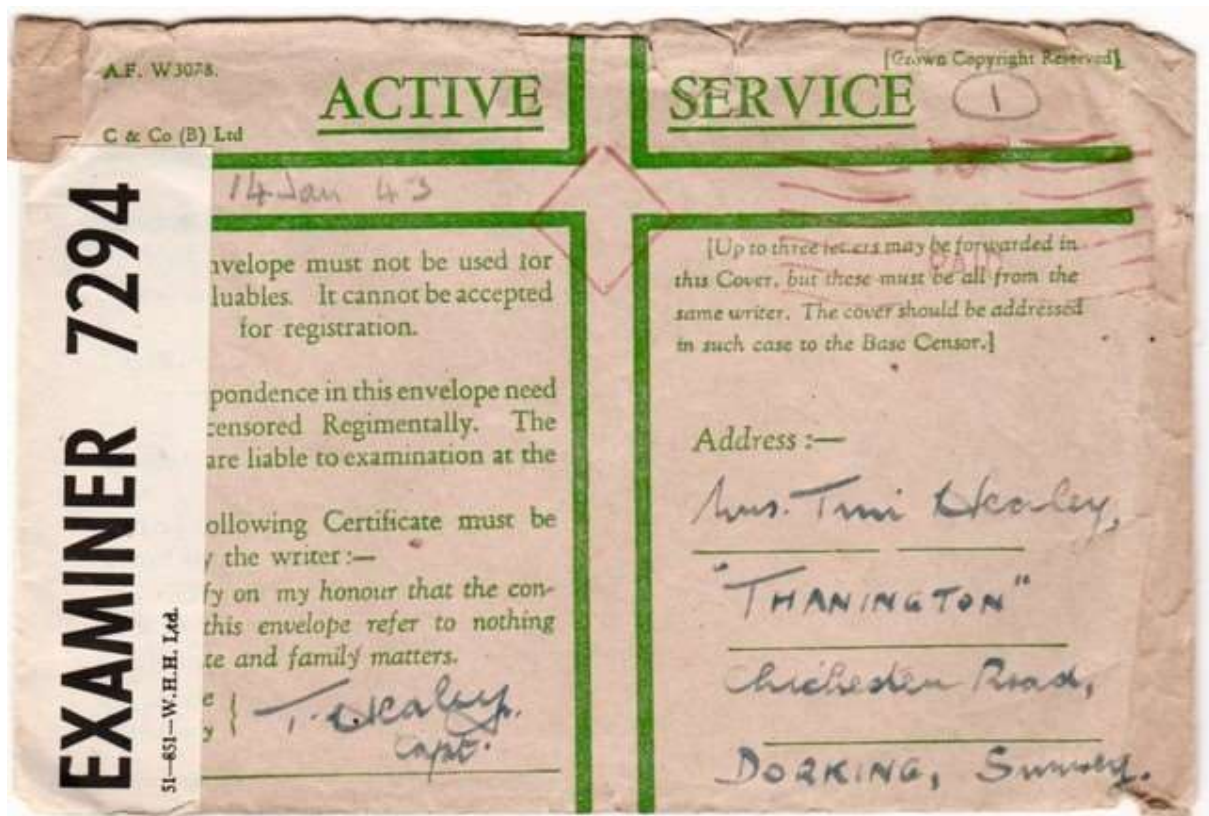 A.F. W3078.
[Crown Copyright Reserved]
ACTIVE SERVICE
1
C & Co (B) Ltd
14 Jan 43
EXAMINER 7294
51—851—W.H.H. Ltd.
nvelope must not be used for
luables. It cannot be accepted
for registration.
pondence in this envelope need
censored Regimentally. The
are liable to examination at the
ollowing Certificate must be
y the writer:—
fy on my honour that the con-
this envelope refer to nothing
te and family matters.
e
y
T. Healey.
Capt.
[Up to three letters may be forwarded in
this Cover, but these must be all from the
same writer. The cover should be addressed
in such case to the Base Censor.]
PAID
Address:—
Mrs. Tim Healey,
"THANINGTON"
Chichester Road,
DORKING, Surrey.